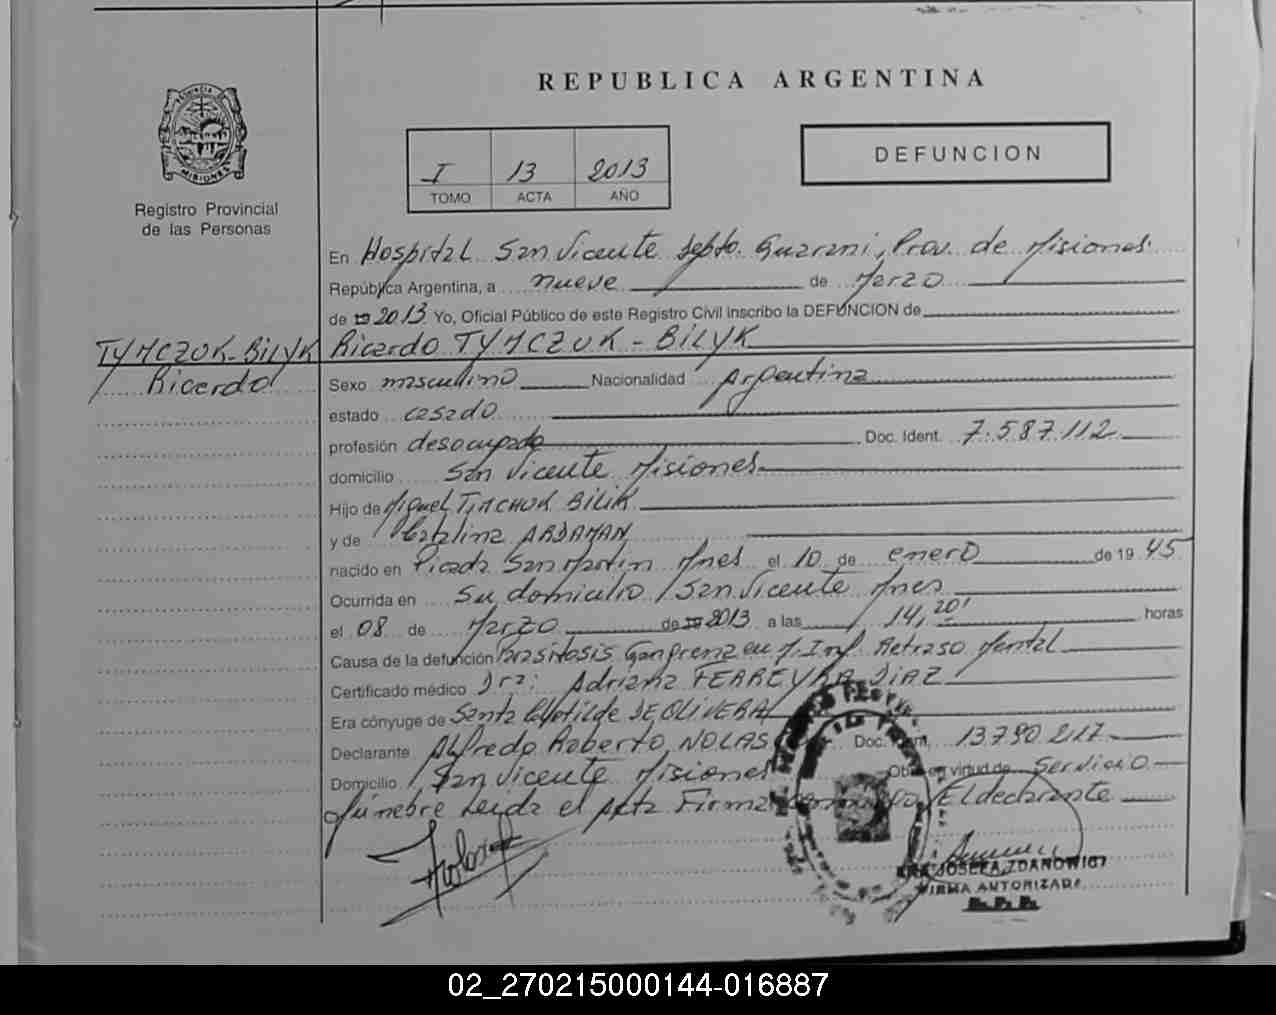 REPUBLICA ARGENTINA
PROVINCIA DE MISIONES
Registro Provincial
de las Personas
I 13 2013
TOMO ACTA AÑO
DEFUNCION
En Hospital San Vicente Depto. Guarani, Prov. de Misiones
República Argentina, a nueve de Marzo
de 19 2013 Yo, Oficial Público de este Registro Civil inscribo la DEFUNCION de
TYMCZUK-BILYK
Ricardo
Ricardo TYMCZUK - BILYK
Sexo masculino Nacionalidad Argentina
estado casado
profesión desocupado Doc. Ident. 7.587.112
domicilio San Vicente Misiones
Hijo de Miguel TIMCHUK BILIK
y de Catalina ARDAMAN
nacido en Picada San Martin Mnes el 10 de enero de 19 45
Ocurrida en Su domicilio San Vicente Mnes
el 08 de Marzo de 19 2013 a las 14,20' horas
Causa de la defunción Gangrena en M. Inf. Retraso Mental
Certificado médico Dra: Adriana FERREYRA DIAZ
Era cónyuge de Santa Clotilde DE OLIVERA
Declarante Alfredo Roberto NOLAS Doc. Ident. 13.790.217
Domicilio San Vicente Misiones Obra en virtud de Servicio
fúnebre Leida el Acta Firma El declarante
JOSEFA ZDANOWICZ
FIRMA AUTORIZADA
R. P. P.
02_270215000144-016887